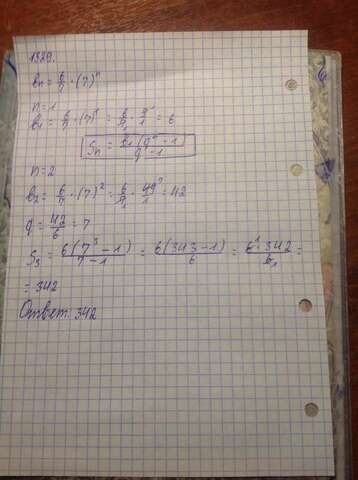 1329.
bₙ = 6/7 · (7)ⁿ
n=1
b₁ = 6/7 · (7)¹ = 6/7 · 7/1 = 6
Sₙ = b₁(qⁿ-1)/q-1
n=2
b₂ = 6/7 · (7)² = 6/7 · 49/1 = 42
q = 42/6 = 7
S₃ = 6(7³-1)/7-1 = 6(343-1)/6 = 6·342/6 =
= 342
Ответ: 342